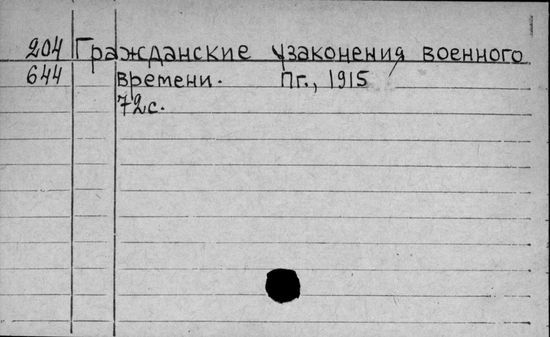 204 Гражданские узаконения военного
644 времени. Пг., 1915
72с.